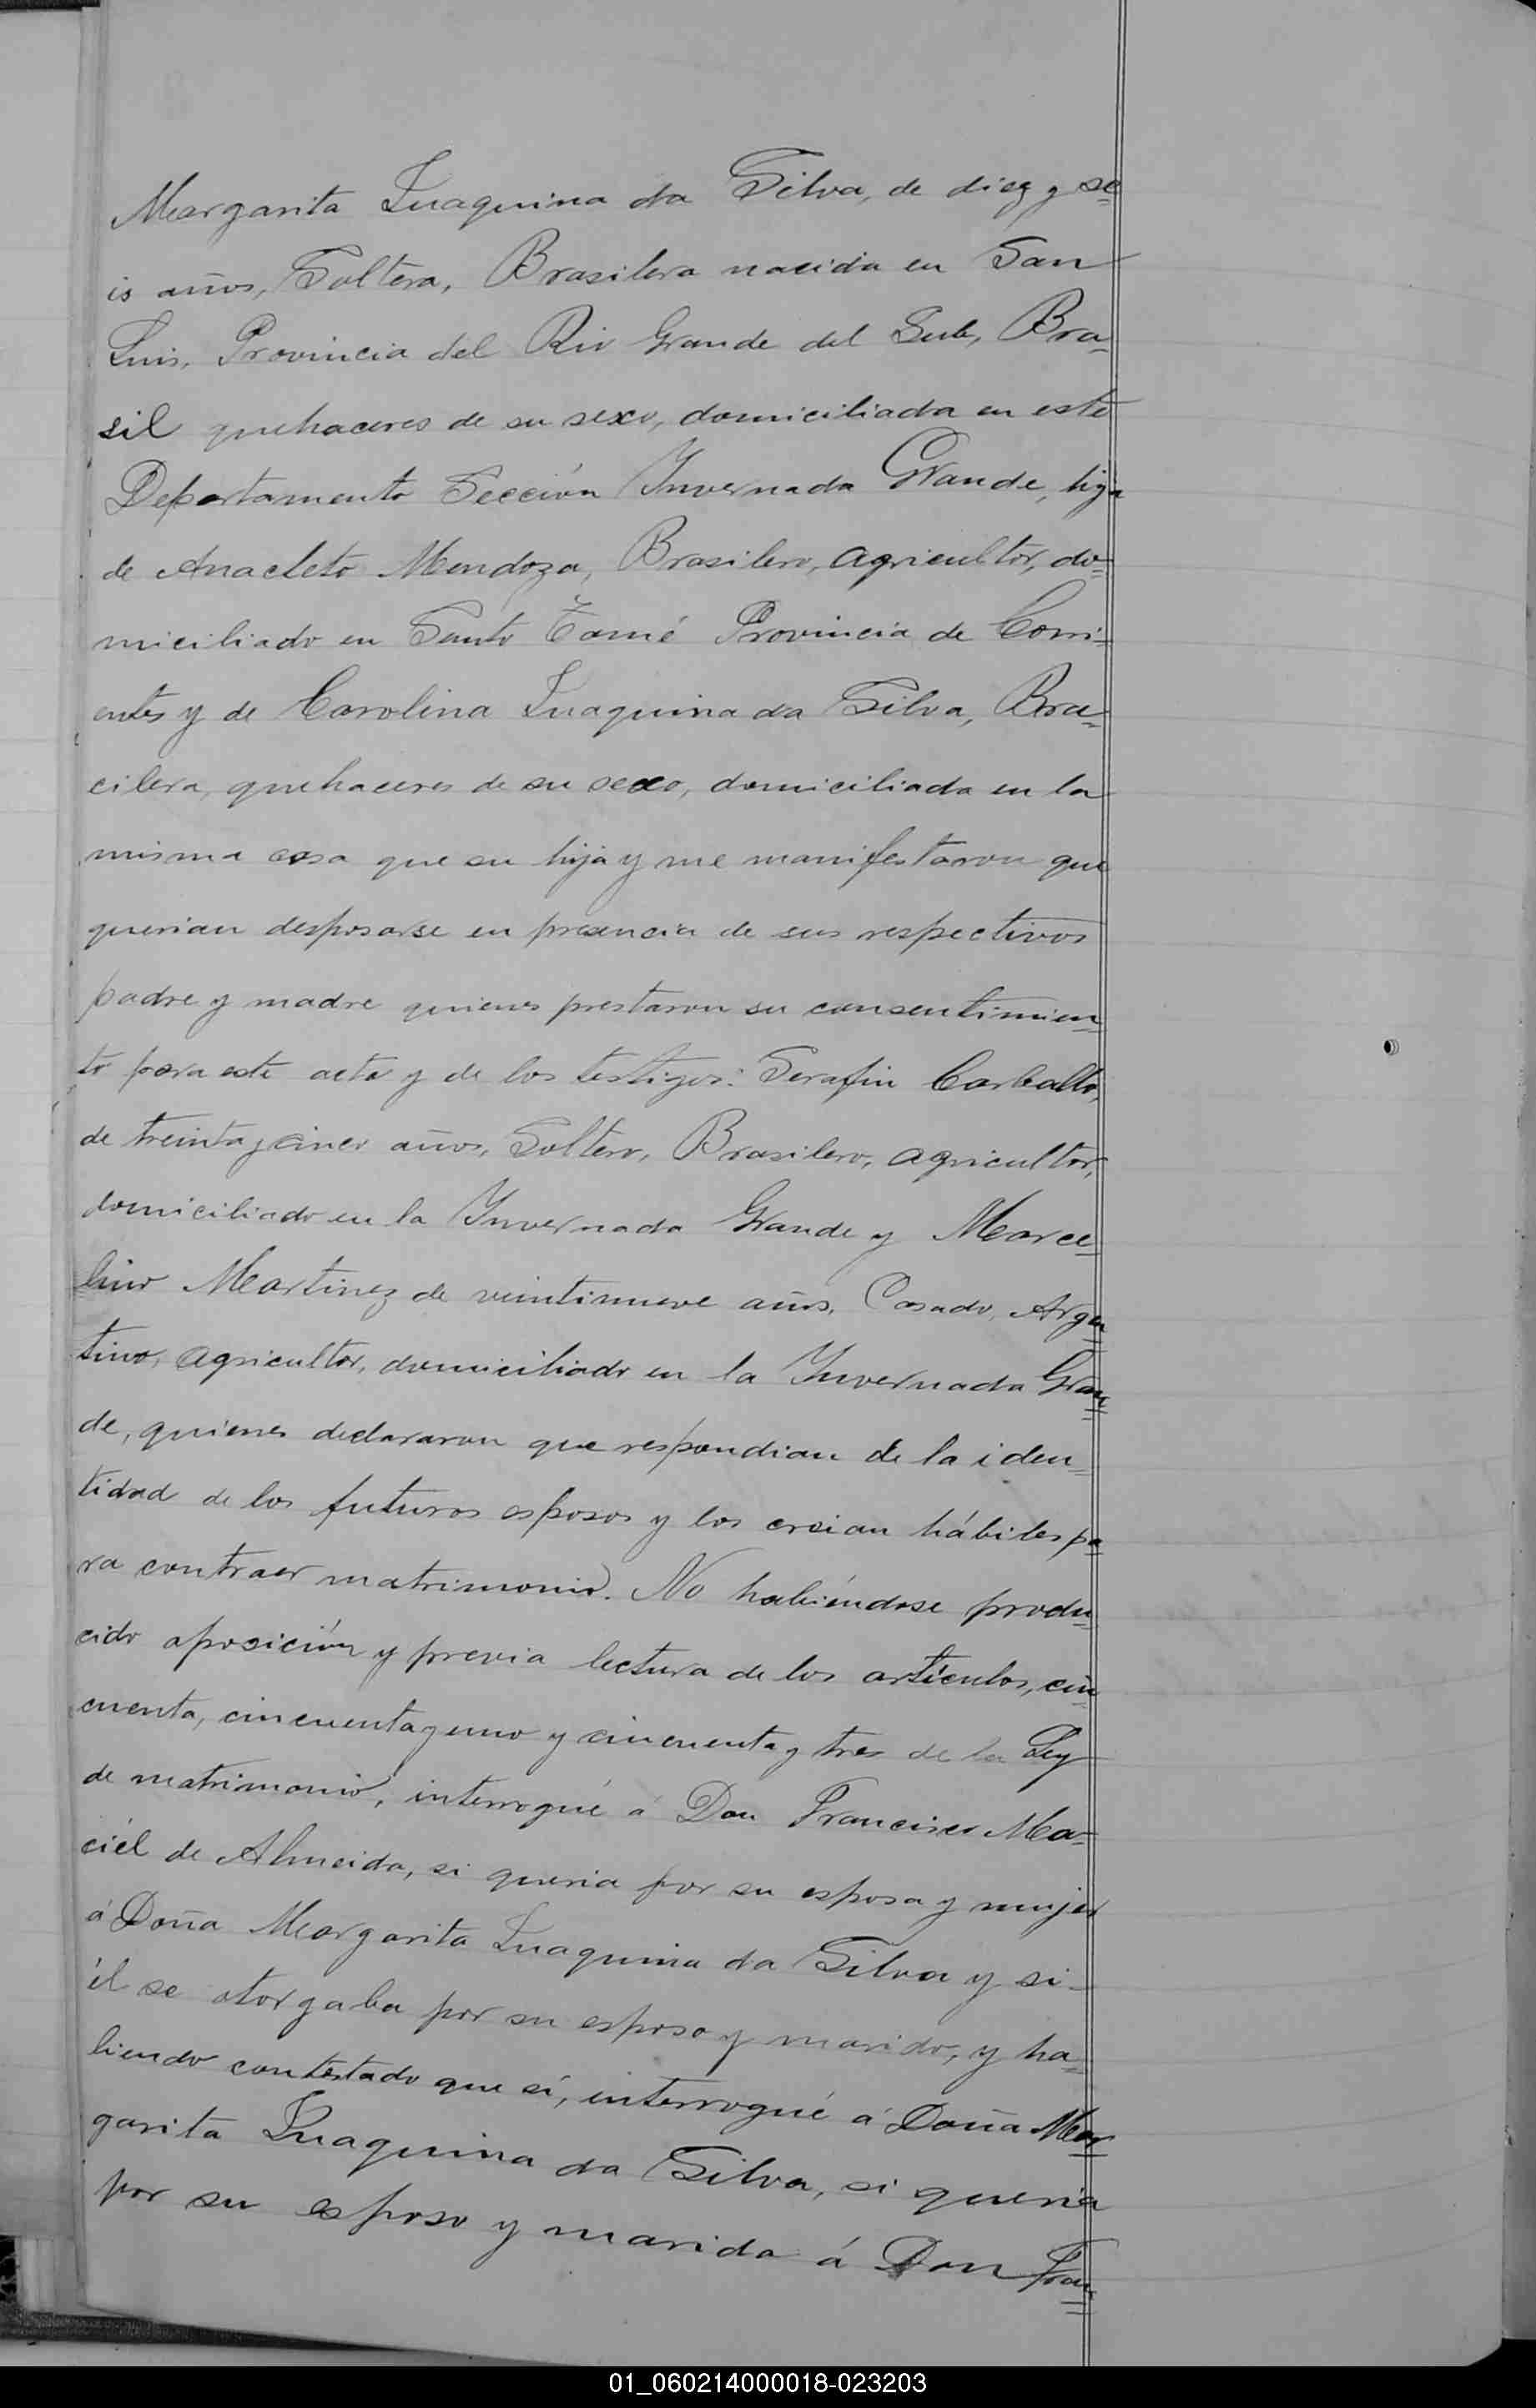 Margarita Luaquina da Silva, de diez y se=
is años, Soltera, Brasilera nacida en San
Luis, Provincia del Rio Grande del Sul, Bra=
sil quehaceres de su sexo, domiciliada en este
Departamento Sección Invernada Grande, hija
de Anacleto Mendoza, Brasilero, agricultor, do=
miciliado en Santo Tomé Provincia de Corri=
entes y de Carolina Luaquina da Silva, Bra=
cilera, quehaceres de su sexo, domiciliada en la
misma casa que su hija y me manifestaron que
querian desposarse en presencia de sus respectivos
padre y madre quienes prestaron su consentimien=
to para este acto y de los testigos: Serafin Carballo,
de treinta y cinco años, Soltero, Brasilero, agricultor,
domiciliado en la Invernada Grande y Marce=
lino Martinez de veintinueve años, Casado, Argen=
tino, agricultor, domiciliado en la Invernada Gran=
de, quienes declararon que respondian de la iden=
tidad de los futuros esposos y los creian hábiles pa=
ra contraer matrimonio. No habiéndose produ=
cido oposición y previa lectura de los artículos, cin=
cuenta, cincuenta y uno y cincuenta y tres de la Ley
de matrimonio, interrogué á Don Francisco Ma=
ciél de Almeida, si queria por su esposa y mujer
á Doña Margarita Luaquina da Silva y si
él se otorgaba por su esposo y marido, y ha=
biendo contestado que sí, interrogué á Doña Mar=
garita Luaquina da Silva, si queria
por su esposo y marido á Don Fran=
01_060214000018-023203